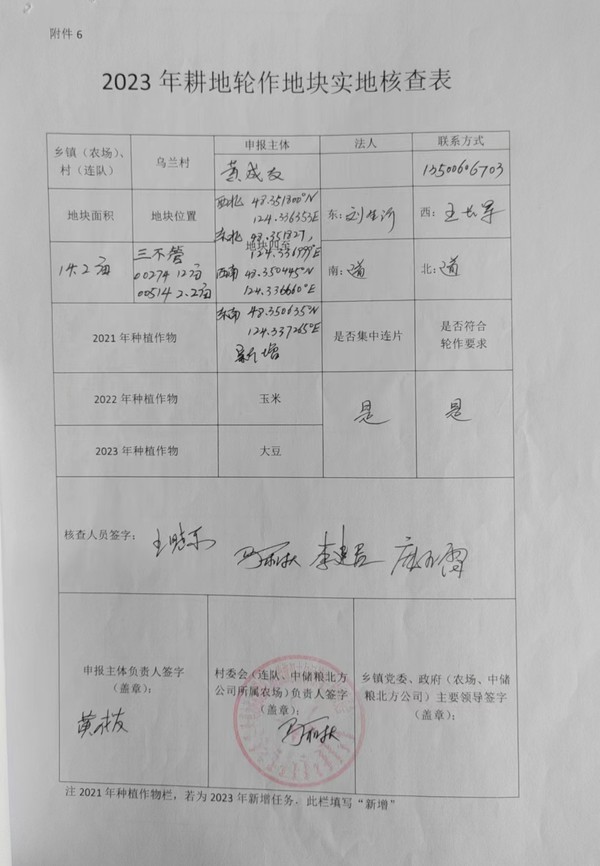 附件 6
2023 年耕地轮作地块实地核查表
乡镇（农场）、村（连队）
乌兰村
申报主体
法人
联系方式
黄成友
13500606703
地块面积
地块位置
地块四至
西北 48.351800°N
124.336353E
东北 48.351827,
124.336999°E
西南 48.350445°N
124.336660°E
东南 48.350635°N
124.337265°E
东：
西：王长军
南：道
北：道
14.2亩
三不管
00274 12亩
00514 2.2亩
2021 年种植作物
新增
是否集中连片
是否符合轮作要求
2022 年种植作物
玉米
是
是
2023 年种植作物
大豆
核查人员签字：
申报主体负责人签字
（盖章）：
黄成友
村委会（连队、中储粮北方
公司所属农场）负责人签字
（盖章）：
乡镇党委、政府（农场、中储
粮北方公司）主要领导签字
（盖章）：
注 2021 年种植作物栏，若为 2023 年新增任务，此栏填写“新增”